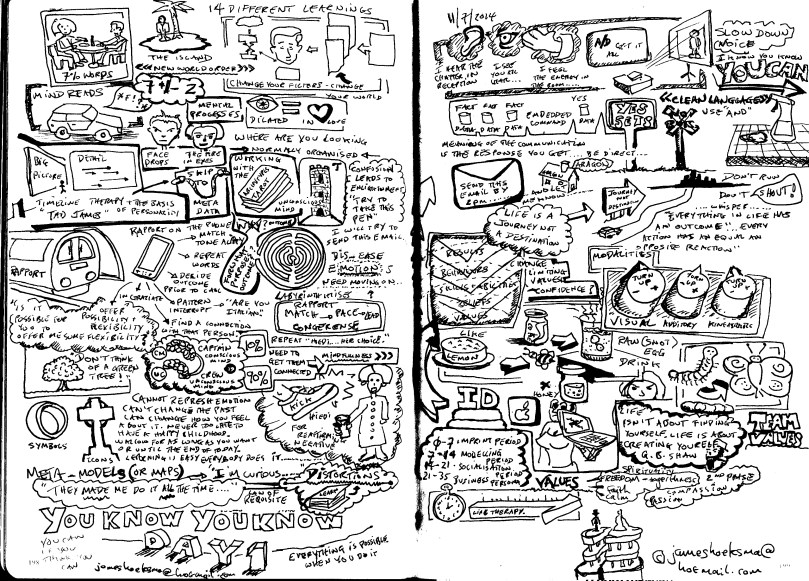 14 DIFFERENT LEARNINGS
7% WORDS
THE ISLAND
"NEW WORLD ORDER"
CHANGE YOUR FILTERS - CHANGE
YOUR WORLD
MIND READS
7+/-2
MENTAL
PROCESSES
DILATED IN LOVE
WHERE ARE YOU LOOKING
NORMALLY ORGANISED
BIG
PICTURE
DETAIL
FACE
DROPS
SKIP
META
DATA
WORKING
WITH
THE
UNCONSCIOUS
MIND
CONFUSION
LEADS TO
"TRY TO
TAKE THIS
PEN"
I WILL TRY TO
SEND THIS EMAIL.
TIMELINE THERAPY + THE BASIS
"TAD JAMES" OF PERSONALITY
RAPPORT
RAPPORT ON THE PHONE
MATCH
TONE ALSO
REPEAT
WORDS
DECIDE
OUTCOME
PRIOR TO CALL
PATTERN
INTERRUPT
"ARE YOU
ITALIAN"
DIS-EASE
EMOTION IS
NEED MOVING ON...
"IS IT
POSSIBLE FOR
YOU TO
OFFER
POSSIBILITY +
FLEXIBILITY
OFFER ME SOME FLEXIBILITY?
FIND A CONNECTION
WITH THAT PERSON
CAPTAIN
CONSCIOUS
MIND
10%
CREW
UNCONSCIOUS
MIND
90%
RAPPORT
MATCH PACE LEAD
CONGERENSE
REPEAT "HEIDI... HER CHOICE."
NEED TO
GET THEM
CONNECTED
MINDFULNESS
DON'T THINK
OF A GREEN
TREE!!
KICK
HIEDI
FOR
NEGATIVE
SYMBOLS
ICONS
CANNOT REPRESS EMOTION
CAN'T CHANGE THE PAST
CAN CHANGE HOW YOU FEEL
ABOUT IT. NEVER TOO LATE TO
HAVE A HAPPY CHILDHOOD.
WAITING FOR AS LONG AS YOU WANT
OR UNTIL THE END OF TODAY.
LEARNING IS EASY EVERYBODY DOES IT
META-MODELS (OR MAPS)
I'M CURIOUS
DISTORTIONS
"THEY MADE ME DO IT ALL THE TIME...."
LAW OF
REQUISITE
YOU KNOW YOU KNOW
DAY 1
YOU CAN
IF YOU
THINK YOU
CAN
EVERYTHING IS POSSIBLE
WHEN YOU DO IT
jameshoeksma@hotmail.com
11/7/2014
I HEAR THE
CHATTER IN
RECEPTION
I SEE
YOU ALL
HERE...
I FEEL
THE ENERGY IN
THE ROOM...
AND
GET IT
ALL
SLOW DOWN
VOICE
I KNOW YOU KNOW
YOU CAN
FACT FACT FACT
DATA, DATA DATA
EMBEDDED
COMMAND
YES
DATA
YES
SETS!
"CLEAN LANGUAGE"
USE "AND"
MEANING OF THE COMMUNICATION
IF THE RESPONSE YOU GET.... BE DIRECT...
SEND THIS
EMAIL BY
2PM.....
JOURNEY
NOT
DESTINATION
DON'T RUN
DON'T SHOUT!
.... WHISPER...
"EVERYTHING IN LIFE HAS
AN OUTCOME".. EVERY
ACTION HAS AN EQUAL AN
OPPOSITE REACTION"
LIFE IS A
JOURNEY NOT
A DESTINATION
RESULTS
BEHAVIORS
SKILLS + ABILITIES
BELIEFS
VALUES
CHANGE
LIMITING
VALUES
CONFIDENCE?
MODALITIES
TURN
UP
TURN
UP
VISUAL
AUDITORY
KINESTHETIC
LIKE
LEMON
RAW (SHOT)
EGG
DRINK
HONEY
ID
0-7 IMPRINT PERIOD
7-14 MODELLING
PERIOD
14-21 - SOCIALISATION
PERIOD
21-35 BUSINESS PERSONA
LIFE
ISN'T ABOUT FINDING
YOURSELF. LIFE IS ABOUT
CREATING YOURSELF
G.B. SHAW
TEAM
VALUES
VALUES
SPIRITUALITY
FREEDOM
COMPASSION
PASSION
FAITH
CALM
LAB THERAPY.
@jameshoeksma@
hotmail.com